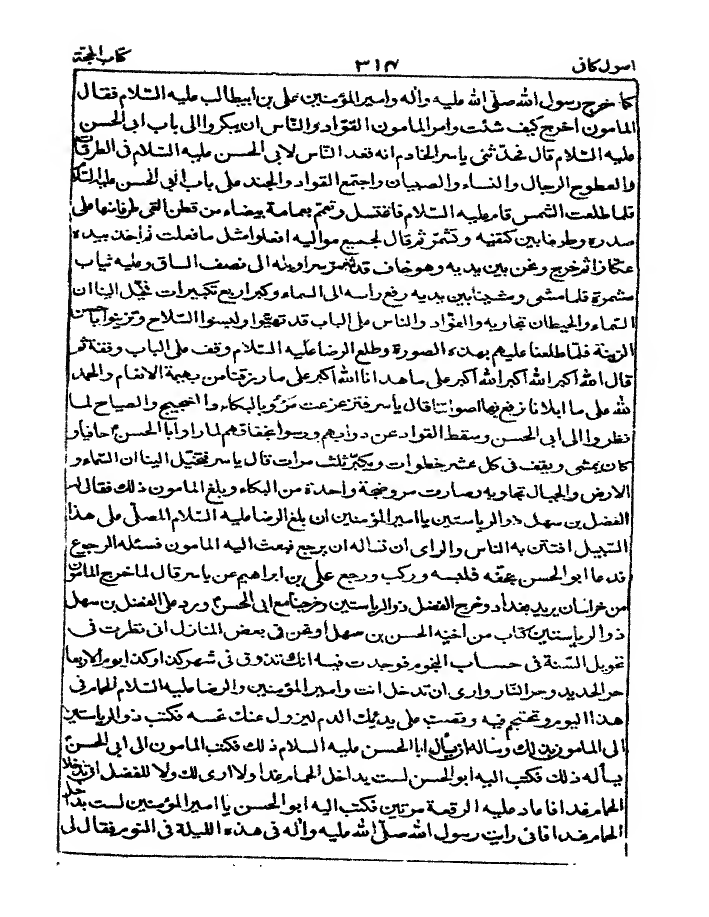 اصول كافى ٣١٣ كتاب الحجة
كما خرج رسول الله صلّى الله عليه واله وامير المؤمنين على بن ابيطالب عليه السّلام فقال
المامون اخرج كيف شئت وامر المامون القوّاد والنّاس ان يبكروا الى باب ابى الحسن
عليه السّلام قال فحدّثنى ياسر الخادم انه قعد النّاس لابى الحسن عليه السّلام فى الطرقات
والسطوح الرجال والنساء والصبيان واجتمع القواد والجند على باب ابى الحسن عليه السّلام
فلما طلعت الشمس قام عليه السّلام فاغتسل وتعمّم بعمامة بيضاء من قطن القى طرفا منها على
صدره وطرفا بين كتفيه وتشمّر ثم قال لجميع مواليه افعلوا مثل ما فعلت ثم اخذ بيده
عكّازا ثم خرج ونحن بين يديه وهو حاف قد شمّر سراويله الى نصف الساق وعليه ثياب
مشمرة فلما مشى ومشينا بين يديه رفع راسه الى السماء وكبر اربع تكبيرات فخيّل الينا ان
السّماء والحيطان تجاوبه والقوّاد والناس على الباب قد تهيّئوا ولبسوا السّلاح وتزيّنوا باحسن
الزينة فلمّا طلعنا عليهم بهذه الصورة وطلع الرضا عليه السّلام وقف على الباب وقفة ثم
قال الله اكبر الله اكبر الله اكبر على ما هدانا الله اكبر على ما رزقنا من بهيمة الانعام والحمد
لله على ما ابلانا نرفع بها اصواتنا قال ياسر فتزعزعت مرو بالبكاء والضجيج والصياح لما
نظروا الى ابى الحسن وسقط القواد عن دوابهم ورموا بخفافهم لما راوا ابا الحسنؑ حافيا و
كان يمشى ويقف فى كل عشر خطوات ويكبّر ثلث مرات قال ياسر فتخيّل الينا ان السّماء و
الارض والجبال تجاوبه وصارت مرو ضجة واحدة من البكاء وبلغ المامون ذلك فقال له
الفضل بن سهل ذو الرياستين يا امير المؤمنين ان بلغ الرضا عليه السّلام المصلّى على هذا
السّبيل افتتن به الناس والراى ان تساله ان يرجع فبعث اليه المامون فسئله الرجوع
فدعا ابو الحسن بخفّه فلبسه وركب ورجع على بن ابراهيم عن ياسر قال لما خرج المامون
من خراسان يريد بغداد وخرج الفضل ذو الرياستين وخرجنا مع ابى الحسنؑ ورد على الفضل بن سهل
ذو الرياستين كتاب من اخيه الحسن بن سهل ونحن فى بعض المنازل انى نظرت فى
تحويل السّنة فى حساب النّجوم فوجدت فيه انك تذوق فى شهر كذا وكذا يوم الاربعا
حر الحديد وحر النّار وارى ان تدخل انت وامير المؤمنين والرضا عليه السّلام الحمام فى
هذا اليوم وتحتجم فيه وتصب على يديك الدم ليزول عنك نحسه فكتب ذو الرياستين
الى المامون بذلك وساله ان يسأل ابا الحسن عليه السلام ذلك فكتب المامون الى ابى الحسنؑ
يسأله ذلك فكتب اليه ابو الحسن لست بداخل الحمام غدا ولا ارى لك ولا للفضل ان تدخلا
الحمام غدا فاعاد عليه الرقعة مرتين فكتب اليه ابو الحسن يا امير المؤمنين لست بداخل
الحمام غدا فانى رايت رسول الله صلّى الله عليه واله فى هذه الليلة فى النوم فقال لى